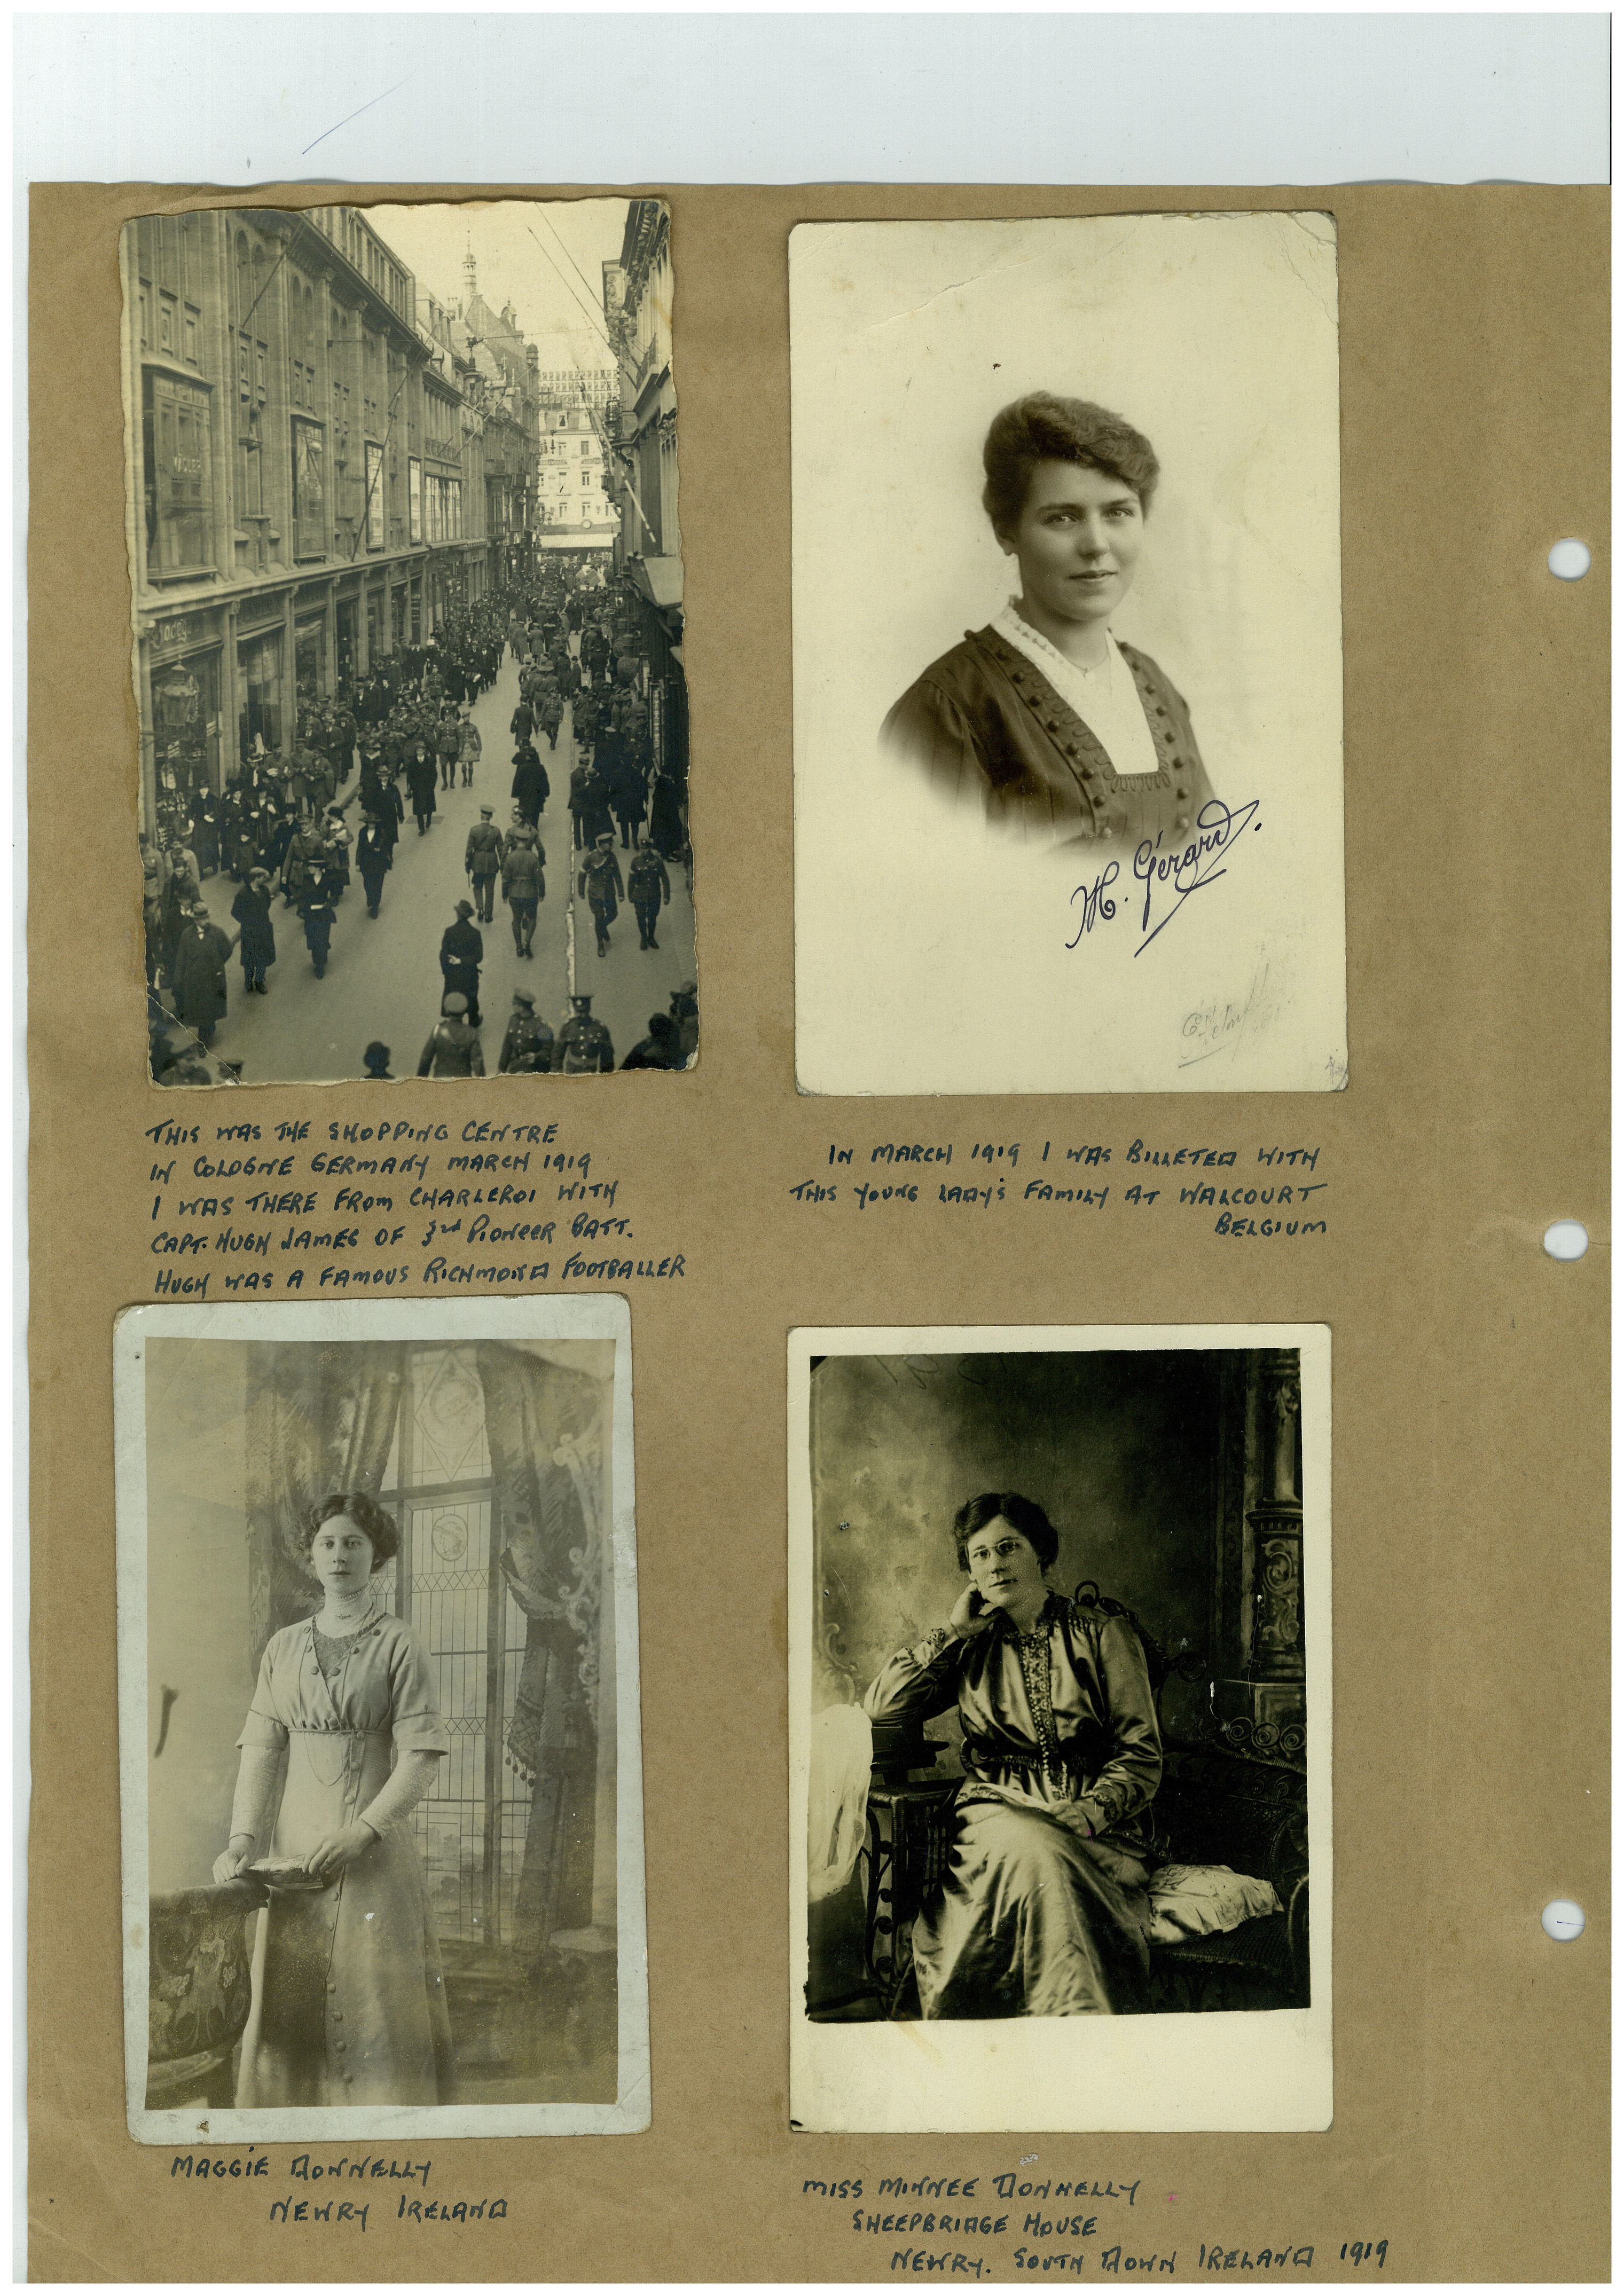 THIS WAS THE SHOPPING CENTRE
IN COLOGNE GERMANY MARCH 1919
I WAS THERE FROM CHARLEROI WITH
CAPT. HUGH JAMES OF 3rd PIONEER BATT.
HUGH WAS A FAMOUS RICHMOND FOOTBALLER
M. Gérard.
IN MARCH 1919 I WAS BILLETED WITH
THIS YOUNG LADY'S FAMILY AT WALCOURT
BELGIUM
MAGGIE DONNELLY
NEWRY IRELAND
MISS MINNEE DONNELLY
SHEEPBRIDGE HOUSE
NEWRY. SOUTH DOWN IRELAND 1919